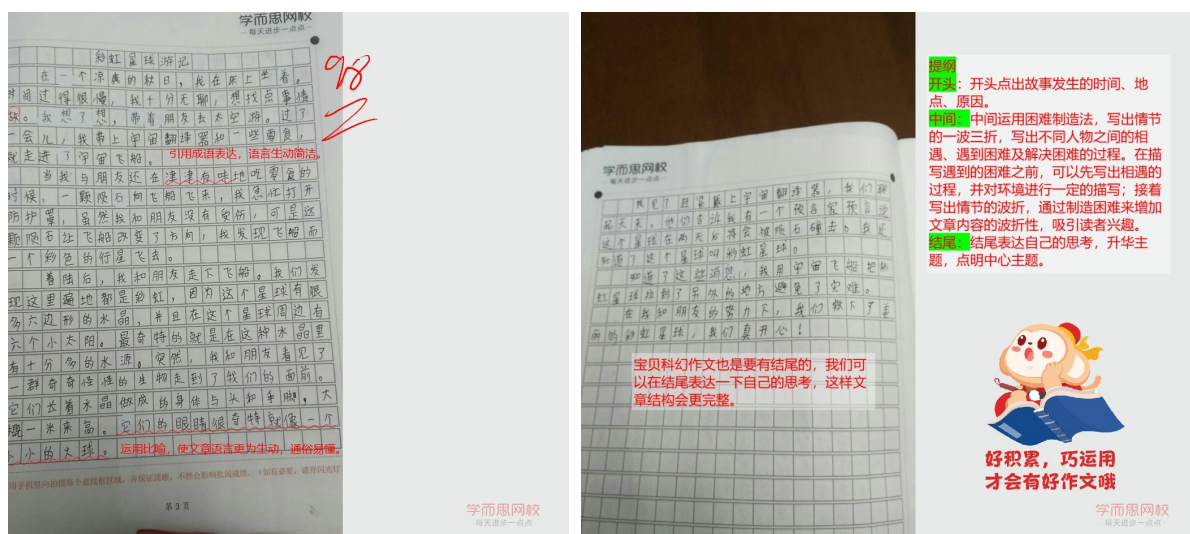 学而思网校
每天进步一点点
彩虹星球游记
在一个凉爽的秋日，我在床上坐着，
时间过得很慢，我十分无聊，想找点事情
做。我想了想，带着朋友去太空游。过了
一会儿，我带上宇宙翻译器和一些零食，
就走进了宇宙飞船。
引用成语表达，语言生动简洁。
当我与朋友还在津津有味地吃零食的
时候，一颗陨石向飞船飞来，我急忙打开
防护罩，虽然我和朋友没有受伤，可是这
颗陨石让飞船改变了方向，我发现飞船向
一个彩色的行星飞去。
着陆后，我和朋友走下飞船。我们发
现这里遍地都是彩虹，因为这个星球有很
多六边形的水晶，并且在这个星球周边有
六个小太阳。最奇特的就是在这种水晶里
有十分多的水源。突然，我和朋友看见了
一群奇奇怪怪的生物走到了我们的面前。
它们长着水晶做成的身体与头和手脚，大
概一米来高。它们的眼睛很奇特就像一个
小小的火球。
运用比喻，使文章语言更为生动，通俗易懂。
第 3 页
98
学而思网校
每天进步一点点
学而思网校
每天进步一点点
我见了赶紧戴上宇宙翻译器，我们聊
起天来。他们告诉我有一个预言家预言说
这个星球在两天后将会被陨石砸击。我还
知道了这个星球叫彩虹星球。
知道了这些消息，我用宇宙飞船把彩
虹星球拉到了另外的地方避免了灾难。
在我和朋友的努力下，我们救下了美
丽的彩虹星球，我们真开心！
宝贝科幻作文也是要有结尾的，我们可
以在结尾表达一下自己的思考，这样文
章结构会更完整。
提纲
开头：开头点出故事发生的时间、地
点、原因。
中间：中间运用困难制造法，写出情节
的一波三折，写出不同人物之间的相
遇、遇到困难及解决困难的过程。在描
写遇到的困难之前，可以先写出相遇的
过程，并对环境进行一定的描写；接着
写出情节的波折，通过制造困难来增加
文章内容的波折性，吸引读者兴趣。
结尾：结尾表达自己的思考，升华主
题，点明中心主题。
好积累，巧运用
才会有好作文哦
学而思网校
每天进步一点点